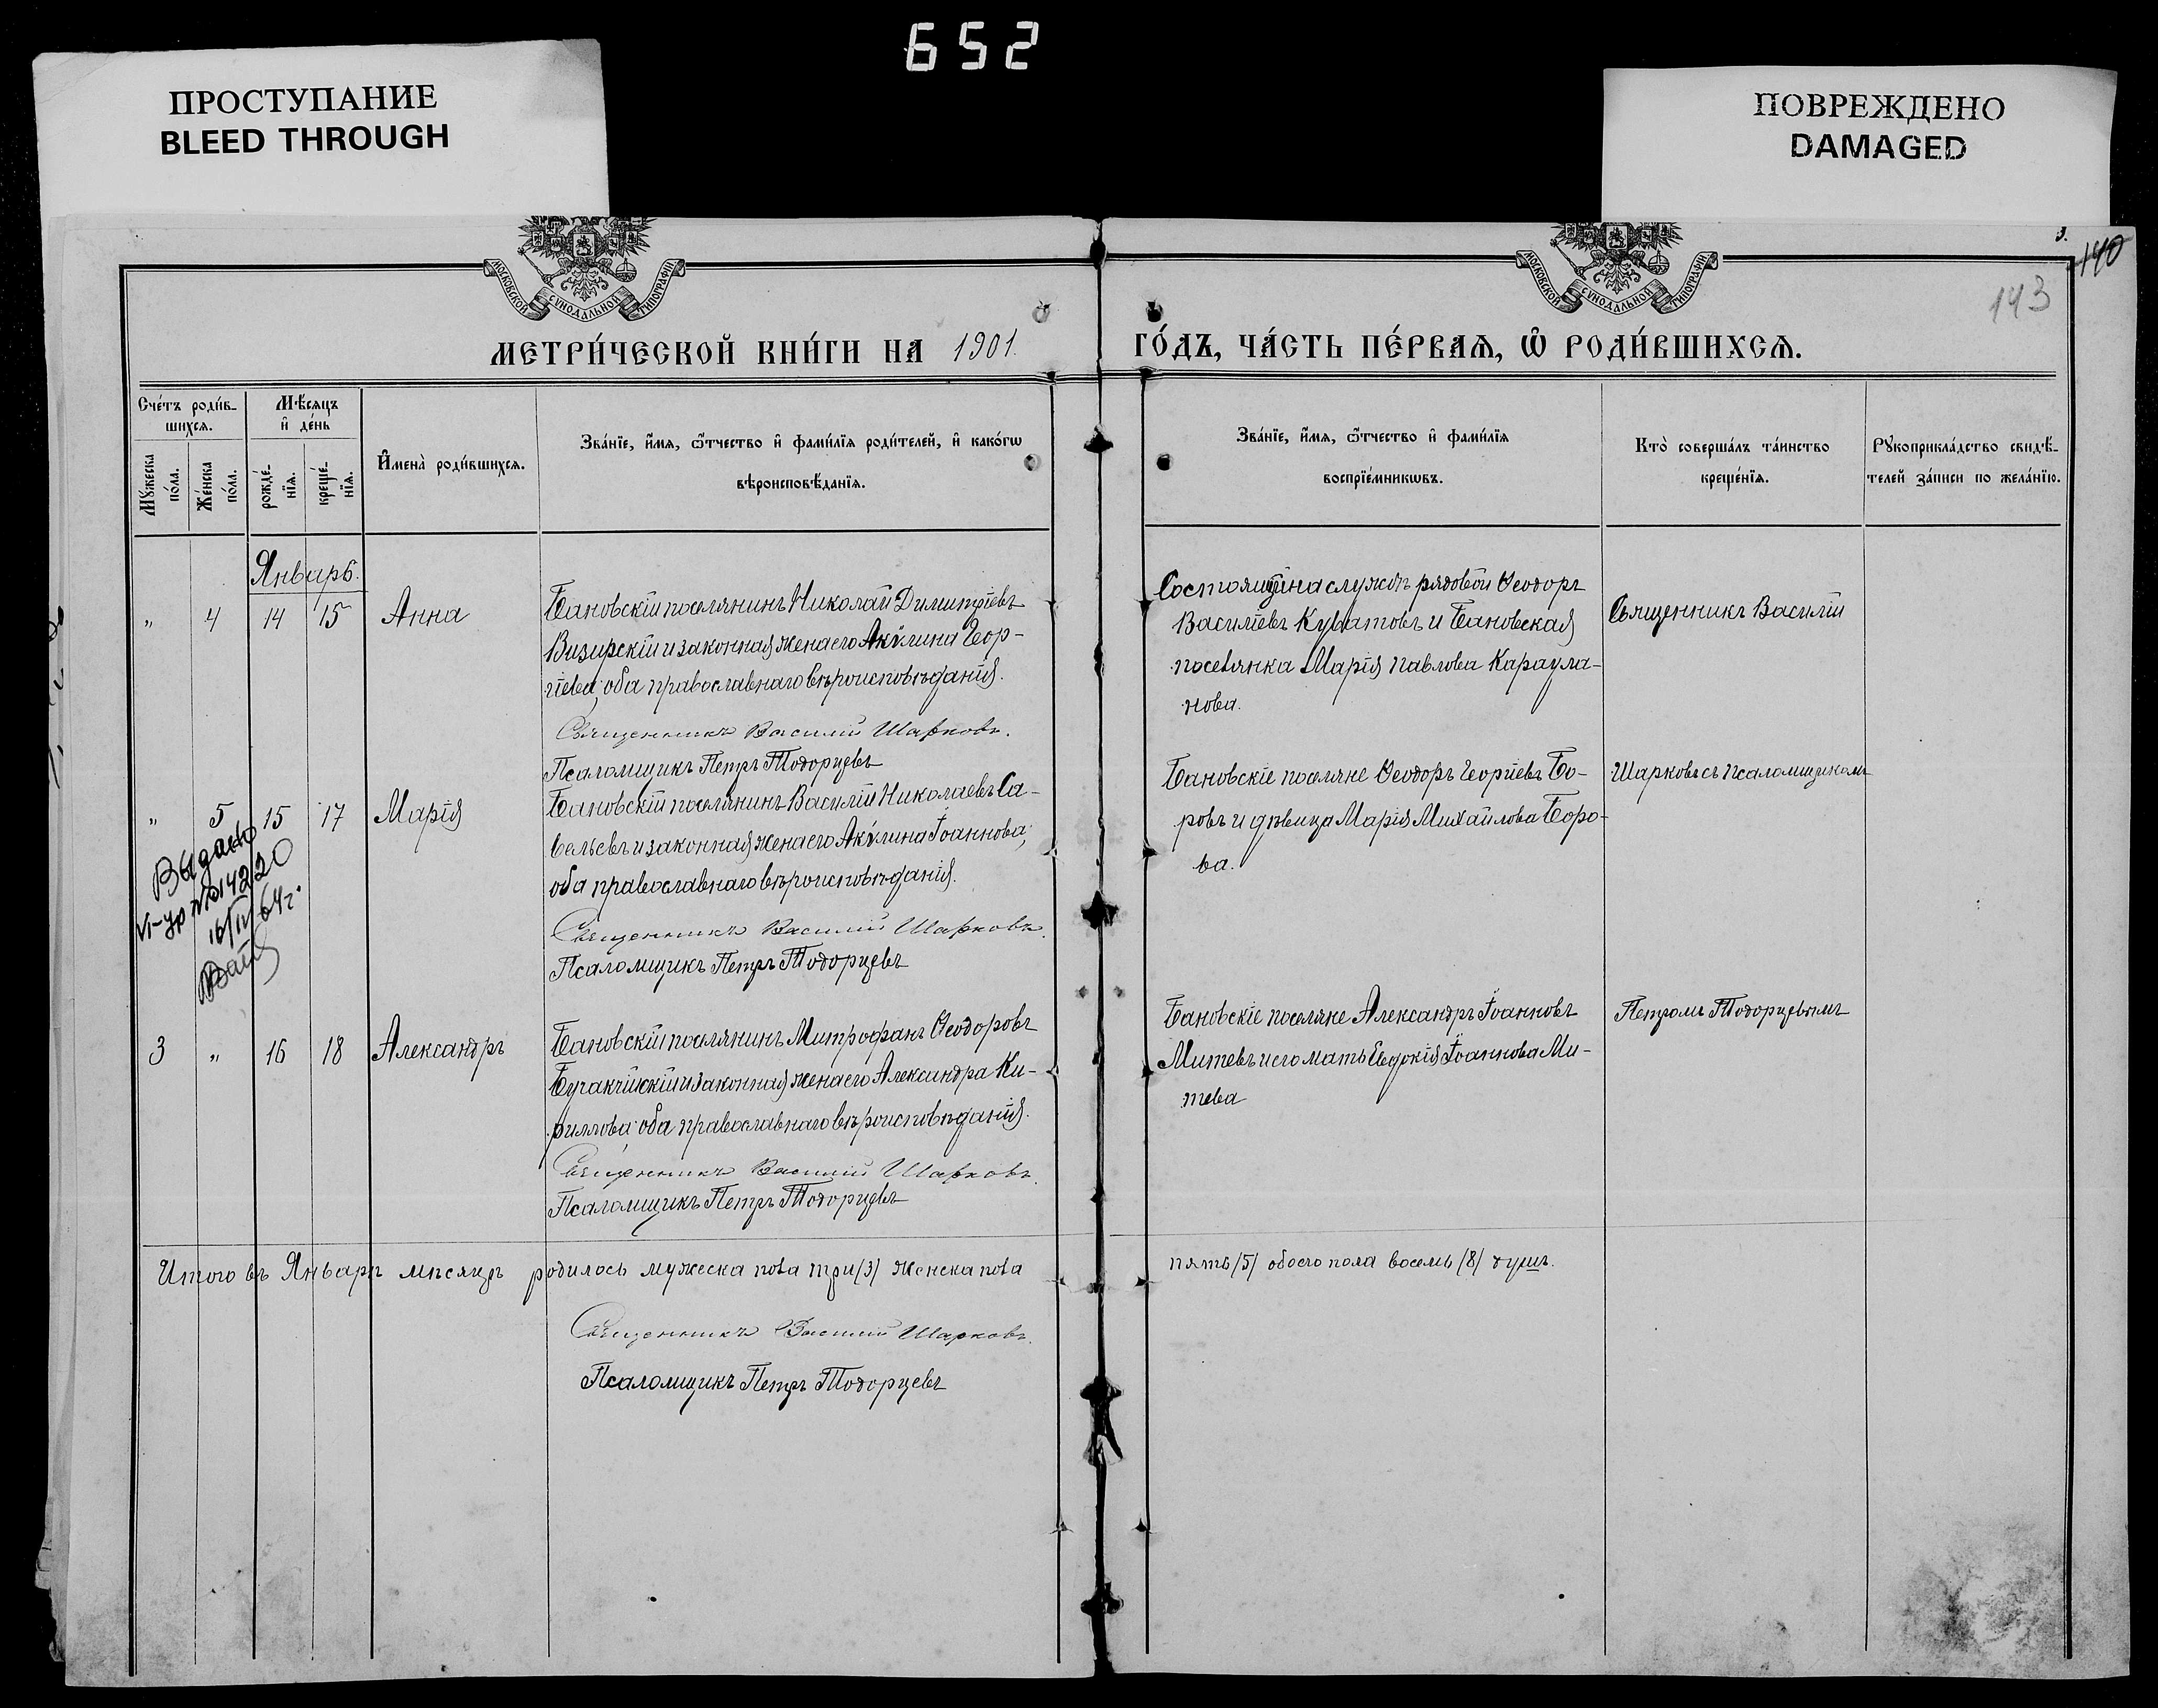 652
ПРОСТУПАНИЕ
BLEED THROUGH
ПОВРЕЖДЕНО
DAMAGED
МОСКОВСКОЙ СѴНОДАЛЬНОЙ ТИПОГРАФІИ
МОСКОВСКОЙ СѴНОДАЛЬНОЙ ТИПОГРАФІИ
3.
140
143
МЕТРИ́ЧЕСКОЙ КНИ́ГИ НА 1901.
ГО́ДЪ, ЧА́СТЬ ПЕ́РВАѦ, Ѡ҆ РОДИ́ВШИХСѦ.
Сче́тъ роди́в-
шихсѧ.
Мꙋ́жеска
по́ла.
Же́нска
по́ла.
Мѣ́сѧцъ
и҆ де́нь
рожде́-
нїѧ.
креще́-
нїѧ.
И҆мена̀ роди́вшихсѧ.
Зва́нїе, и҆́мѧ, ѿ́чество и҆ фами́лїѧ роди́телей, и҆ како́гѡ
вѣроисповѣ́данїѧ.
Зва́нїе, и҆́мѧ, ѿ́чество и҆ фами́лїѧ
воспрїе́мникѡвъ.
Кто̀ соверша́лъ та́инство
креще́нїѧ.
Рꙋкоприкла́дство свидѣ́-
телей за́писи по жела́нїю.
Январь.
" 4 14 15 Анна
Бановскій поселянинъ Николай Димитріевъ
Визирскій и законная жена его Акулина Геор-
гіева, оба православнаго вѣроисповѣданія.
Священникъ Василій Шарковъ.
Псаломщикъ Петръ Тодорцевъ
Состоящій на службѣ рядовой Ѳеодоръ
Василіевъ Куватовъ и Бановская
поселянка Марія Павлова Караула-
нова.
Священникъ Василій
" 5 15 17 Марія
Бановскій поселянинъ Василій Николаевъ Са-
вельевъ и законная жена его Акулина Іоаннова,
оба православнаго вѣроисповѣданія.
Священникъ Василій Шарковъ.
Псаломщикъ Петръ Тодорцевъ
Бановскіе поселяне Ѳеодоръ Георгіевъ Бо-
ровъ и дѣвица Марія Михайлова Боро-
ва.
Шарковъ съ псаломщикомъ
Выдано
№ 14220
16/II 64г.
3 " 16 18 Александръ
Бановскій поселянинъ Митрофанъ Ѳеодоровъ
Бучакчійскій и законная жена его Александра Ки-
риллова оба православнаго вѣроисповѣданія.
Священникъ Василій Шарковъ.
Псаломщикъ Петръ Тодорцевъ
Бановскіе поселяне Александръ Іоанновъ
Митевъ и его мать Евдокія Іоаннова Ми-
тева
Петромъ Тодорцевымъ
Итого въ Январѣ мѣсяцѣ родилось мужеска пола три /3/ женска пола
пять /5/ обоего пола восемь /8/ душъ.
Священникъ Василій Шарковъ.
Псаломщикъ Петръ Тодорцевъ